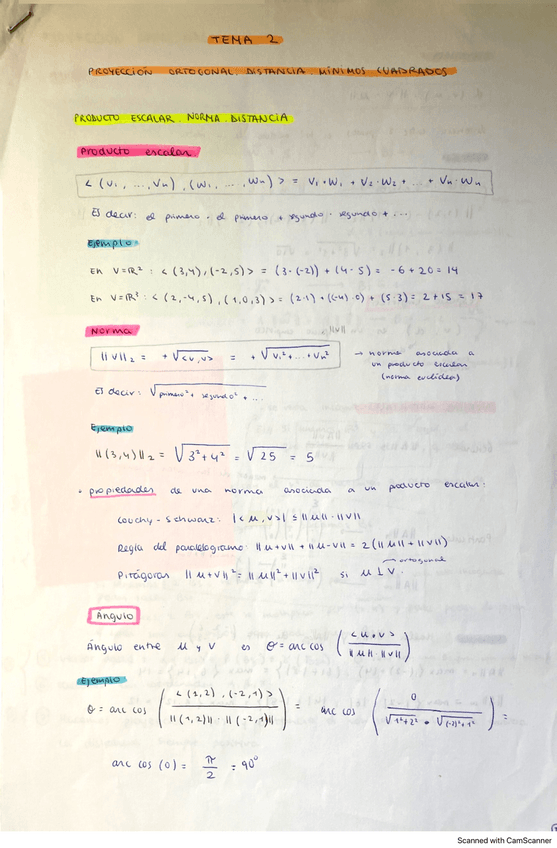 TEMA 2
PROYECCIÓN ORTOGONAL. DISTANCIA MÍNIMOS CUADRADOS
PRODUCTO ESCALAR. NORMA. DISTANCIA
Producto escalar
< (v₁, ..., vₙ), (w₁, ..., wₙ) > = v₁·w₁ + v₂·w₂ + ... + vₙ·wₙ
Es decir: el primero · el primero + segundo · segundo + ...
Ejemplo
En V=ℝ²: < (3,4), (-2,5) > = (3·(-2)) + (4·5) = -6 + 20 = 14
En V=ℝ³: < (2,-4,5), (1,0,3) > = (2·1) + ((-4)·0) + (5·3) = 2 + 15 = 17
Norma
||v||
||v||₂ = +√<v,v> = +√v₁²+...+vₙ² → norma asociada a
un producto escalar
(norma euclídea)
Es decir: √primero² + segundo² + ...
Ejemplo
||(3,4)||₂ = √3²+4² = √25 = 5
• propiedades de una norma asociada a un producto escalar:
Couchy-Schwarz: |<u,v>| ≤ ||u||·||v||
Regla del paralelogramo: ||u+v|| + ||u-v|| = 2(||u|| + ||v||)
ortogonal
Pitágoras ||u+v||² = ||u||² + ||v||² si u ⊥ v.
Ángulo
Ángulo entre u y v es θ = arc cos (<u·v> / ||u||·||v||)
Ejemplo
θ = arc cos (<(1,2),(-2,1)> / ||(1,2)||·||(-2,1)||) = arc cos (0 / √1²+2² · √(-2)²+1²) =
arc cos (0) = π/2 = 90°
Scanned with CamScanner